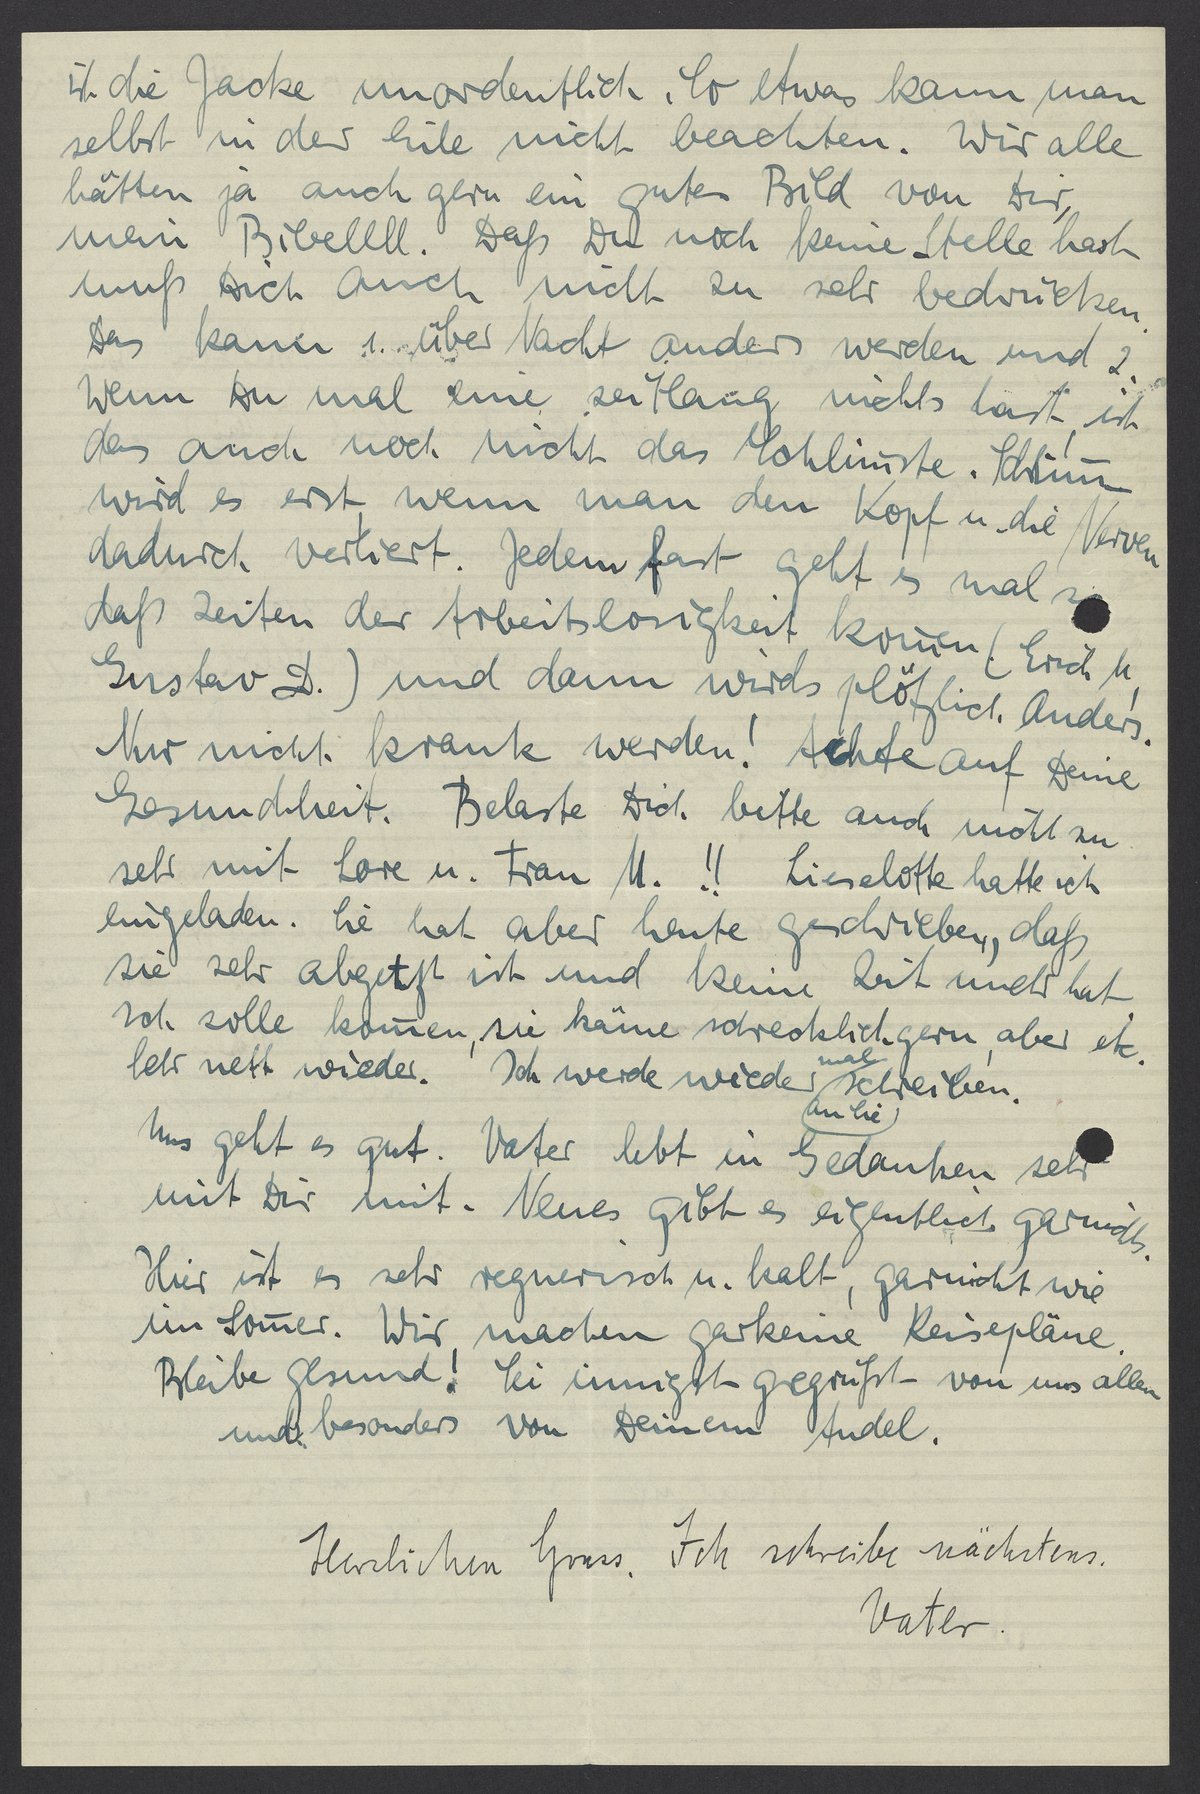 ist die Jacke unordentlich. So etwas kann man
selbst in der Eile nicht beachten. Wir alle
hätten ja auch gern ein gutes Bild von Dir,
mein Bibellll. Daß Du noch keine Stelle hast
muß Dich auch nicht zu sehr bedrücken.
Das kann 1. über Nacht anders werden und 2.
Wenn Du mal eine zeitlang nichts hast, ist
das auch noch nicht das Schlim̄ste. Schlim̄
wird es erst, wenn man den Kopf u. die Nerven
dadurch verliert. Jedem fast geht es mal so
daß Zeiten der Arbeitslosigkeit kom̄en (Erich M,
Gustav D.) und dann wirds plötzlich anders.
Nur nicht krank werden! Achte auf Deine
Gesundheit. Belaste Dich bitte auch nicht zu
sehr mit Lore u. Frau M. !! Lieselotte hatte ich
eingeladen. Sie hat aber heute geschrieben, daß
sie sehr abgehetzt ist und keine Zeit mehr hat
Ich solle kom̄en, sie käme schrecklich gern, aber etc.
Sehr nett wieder. Ich werde wieder mal schreiben.
an sie
Uns geht es gut. Vater lebt in Gedanken sehr
mit Dir mit. Neues gibt es eigentlich garnichts.
Hier ist es sehr regnerisch u. kalt, garnicht wie
im Som̄er. Wir machen garkeine Reisepläne.
Bleibe gesund! Sei innigst gegrüßt von uns allen
und besonders von Deinem Audel.
Herzlichen Gruss. Ich schreibe nächstens.
Vater.